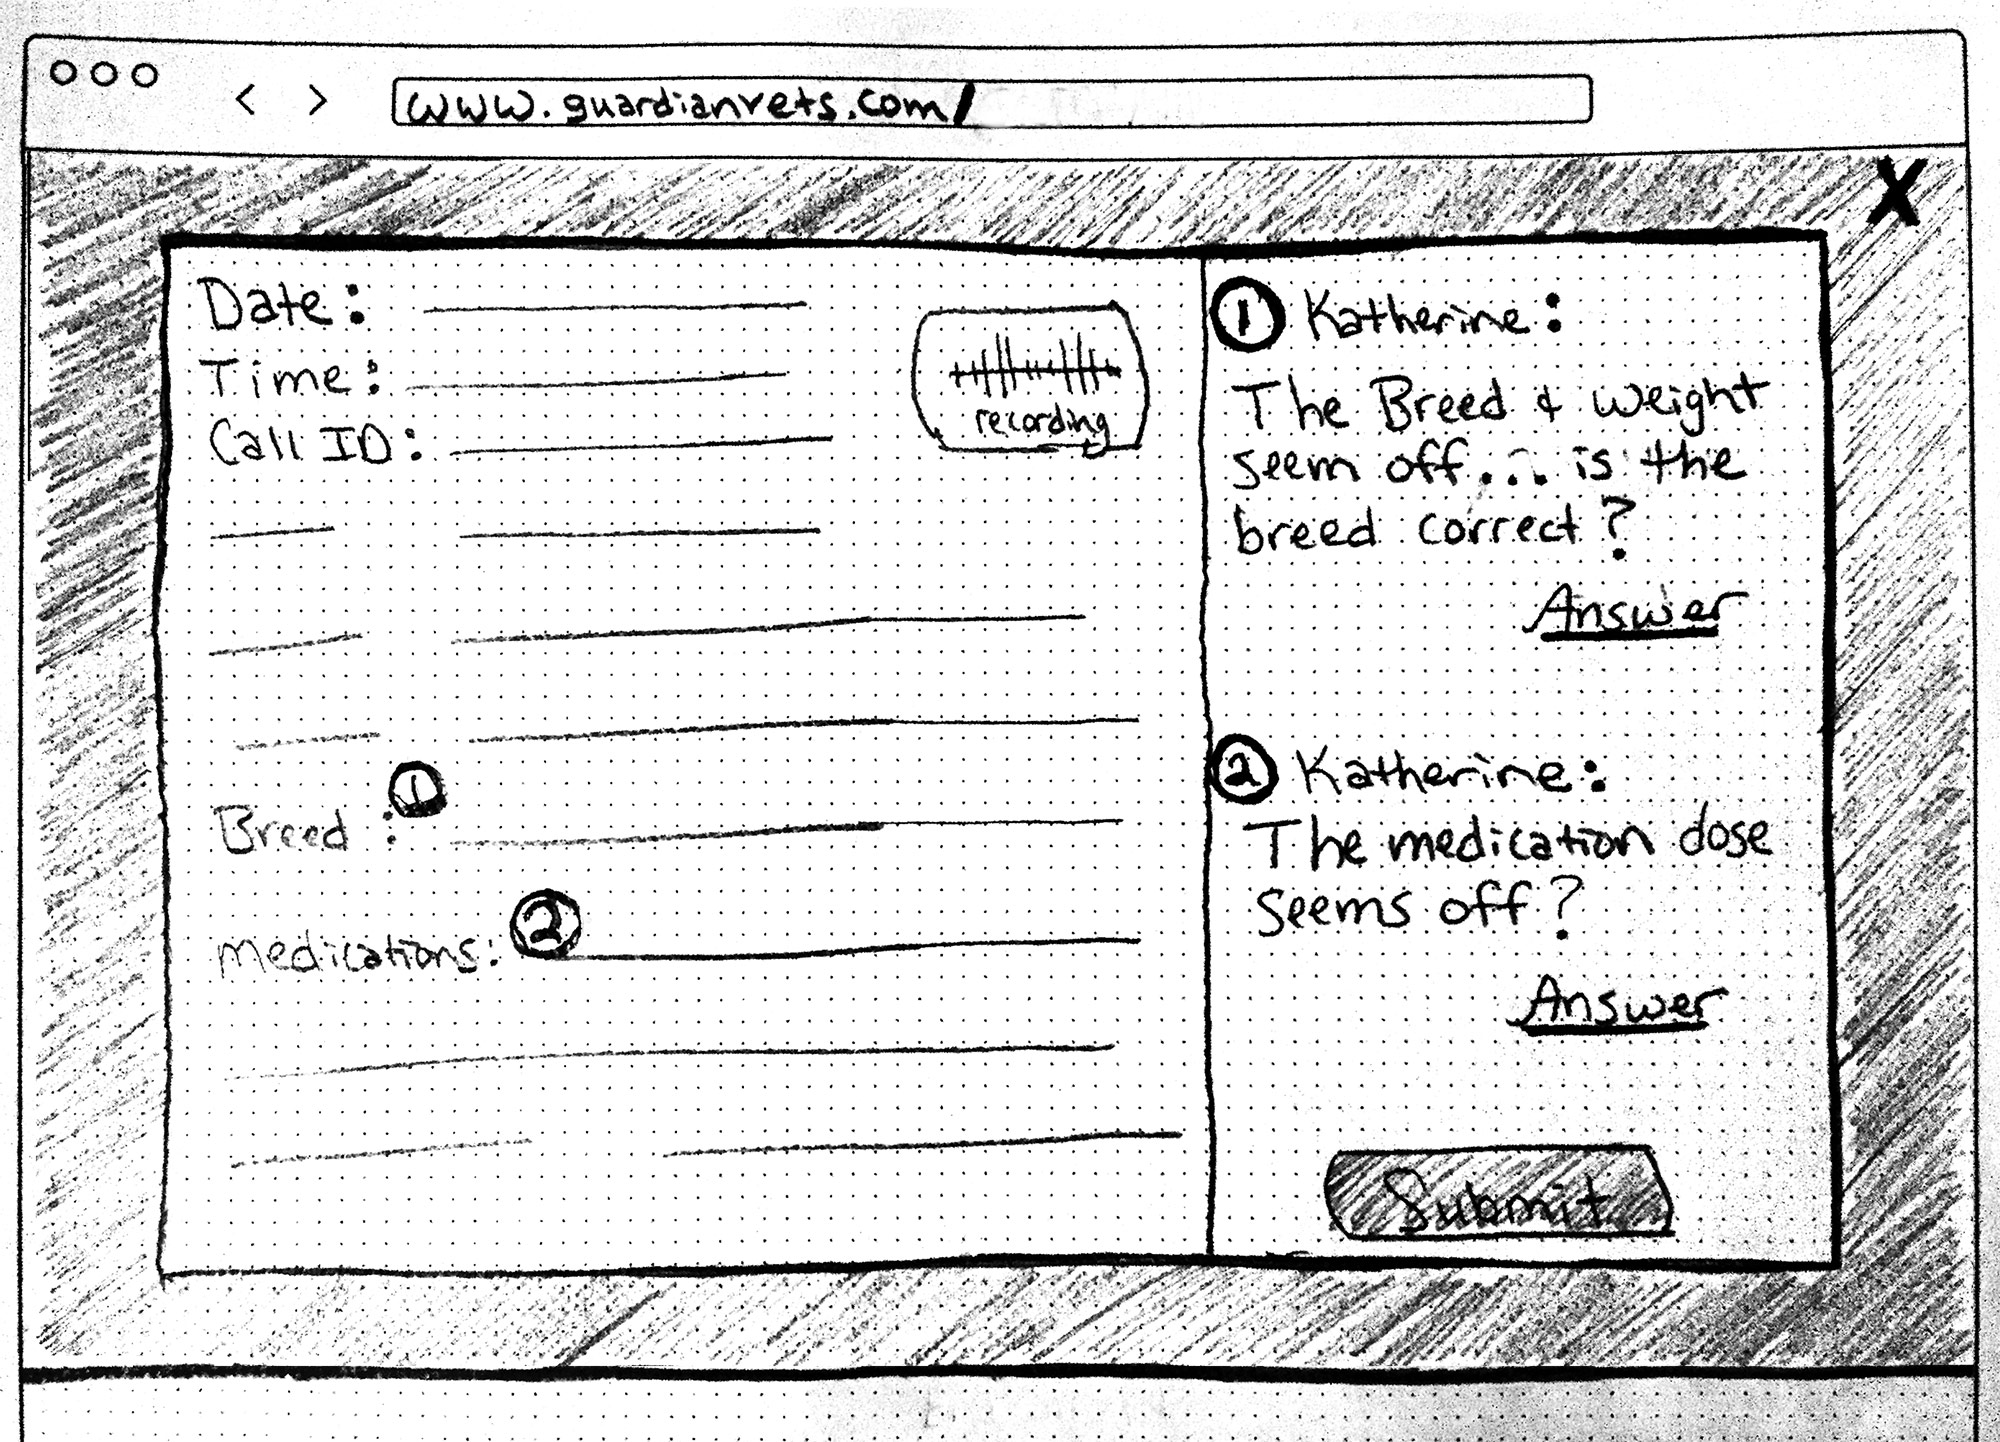 www.guardianvets.com/
X
Date:
Time:
Call ID:
recording
Breed :
1
medications:
2
1 Katherine:
The Breed & weight
seem off... is the
breed correct?
Answer
2 Katherine:
The medication dose
seems off?
Answer
Submit